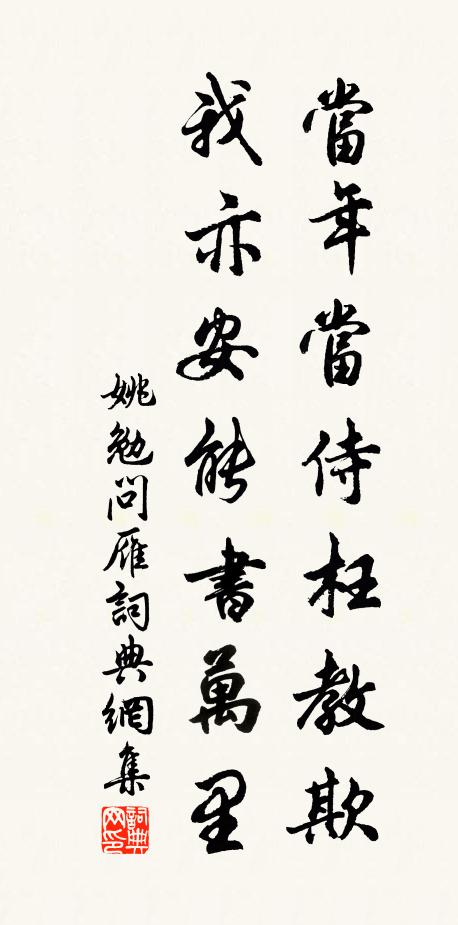 當年當侍枉教欺
我亦安能書萬里
姚勉問雁詞典網集
詞典
网印